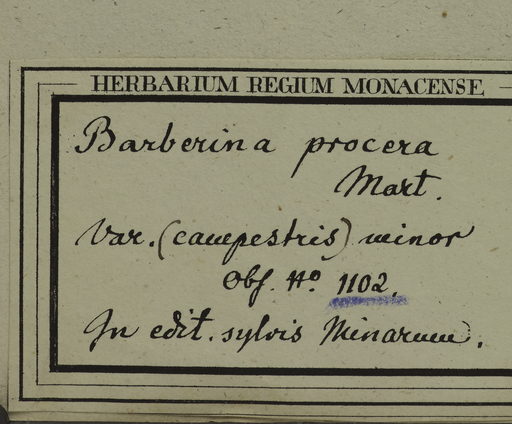 HERBARIUM REGIUM MONACENSE
Barberina procera
Mart.
Var. (campestris) minor
Obs. No. 1102.
In edit. sylvis Minarum.